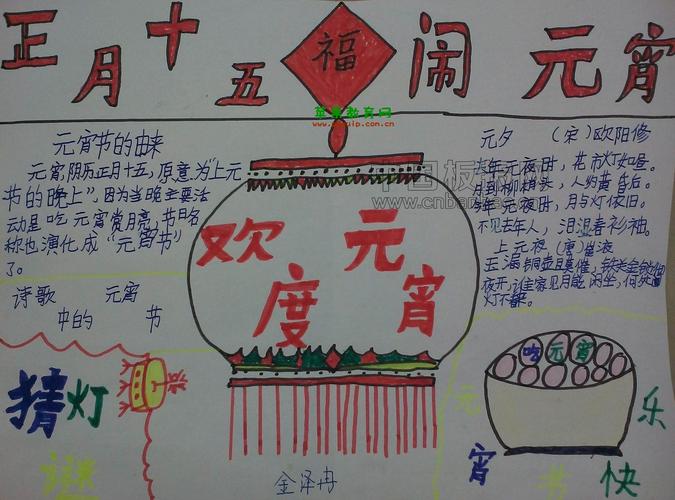 正月十五 福 闹元宵
苹果教育网
元宵节的由来
元宵,阴历正月十五,原意为"上元
节的晚上",因为当晚主要活
动是吃元宵赏月亮,节日名
称也演化成"元宵节"
了。
诗歌 元宵
中的 节
猜灯
谜
欢度元宵
元夕 (宋)欧阳修
去年元夜时,花市灯如昼。
月到柳梢头,人约黄昏后。
今年元夜时,月与灯依旧。
不见去年人,泪湿春衫袖。
上元夜 (唐)崔液
玉漏铜壶且莫催,铁关金锁彻
夜开,谁家见月能闲坐,何处
灯不来。
吃元宵
元
宵
快
乐
金泽冉